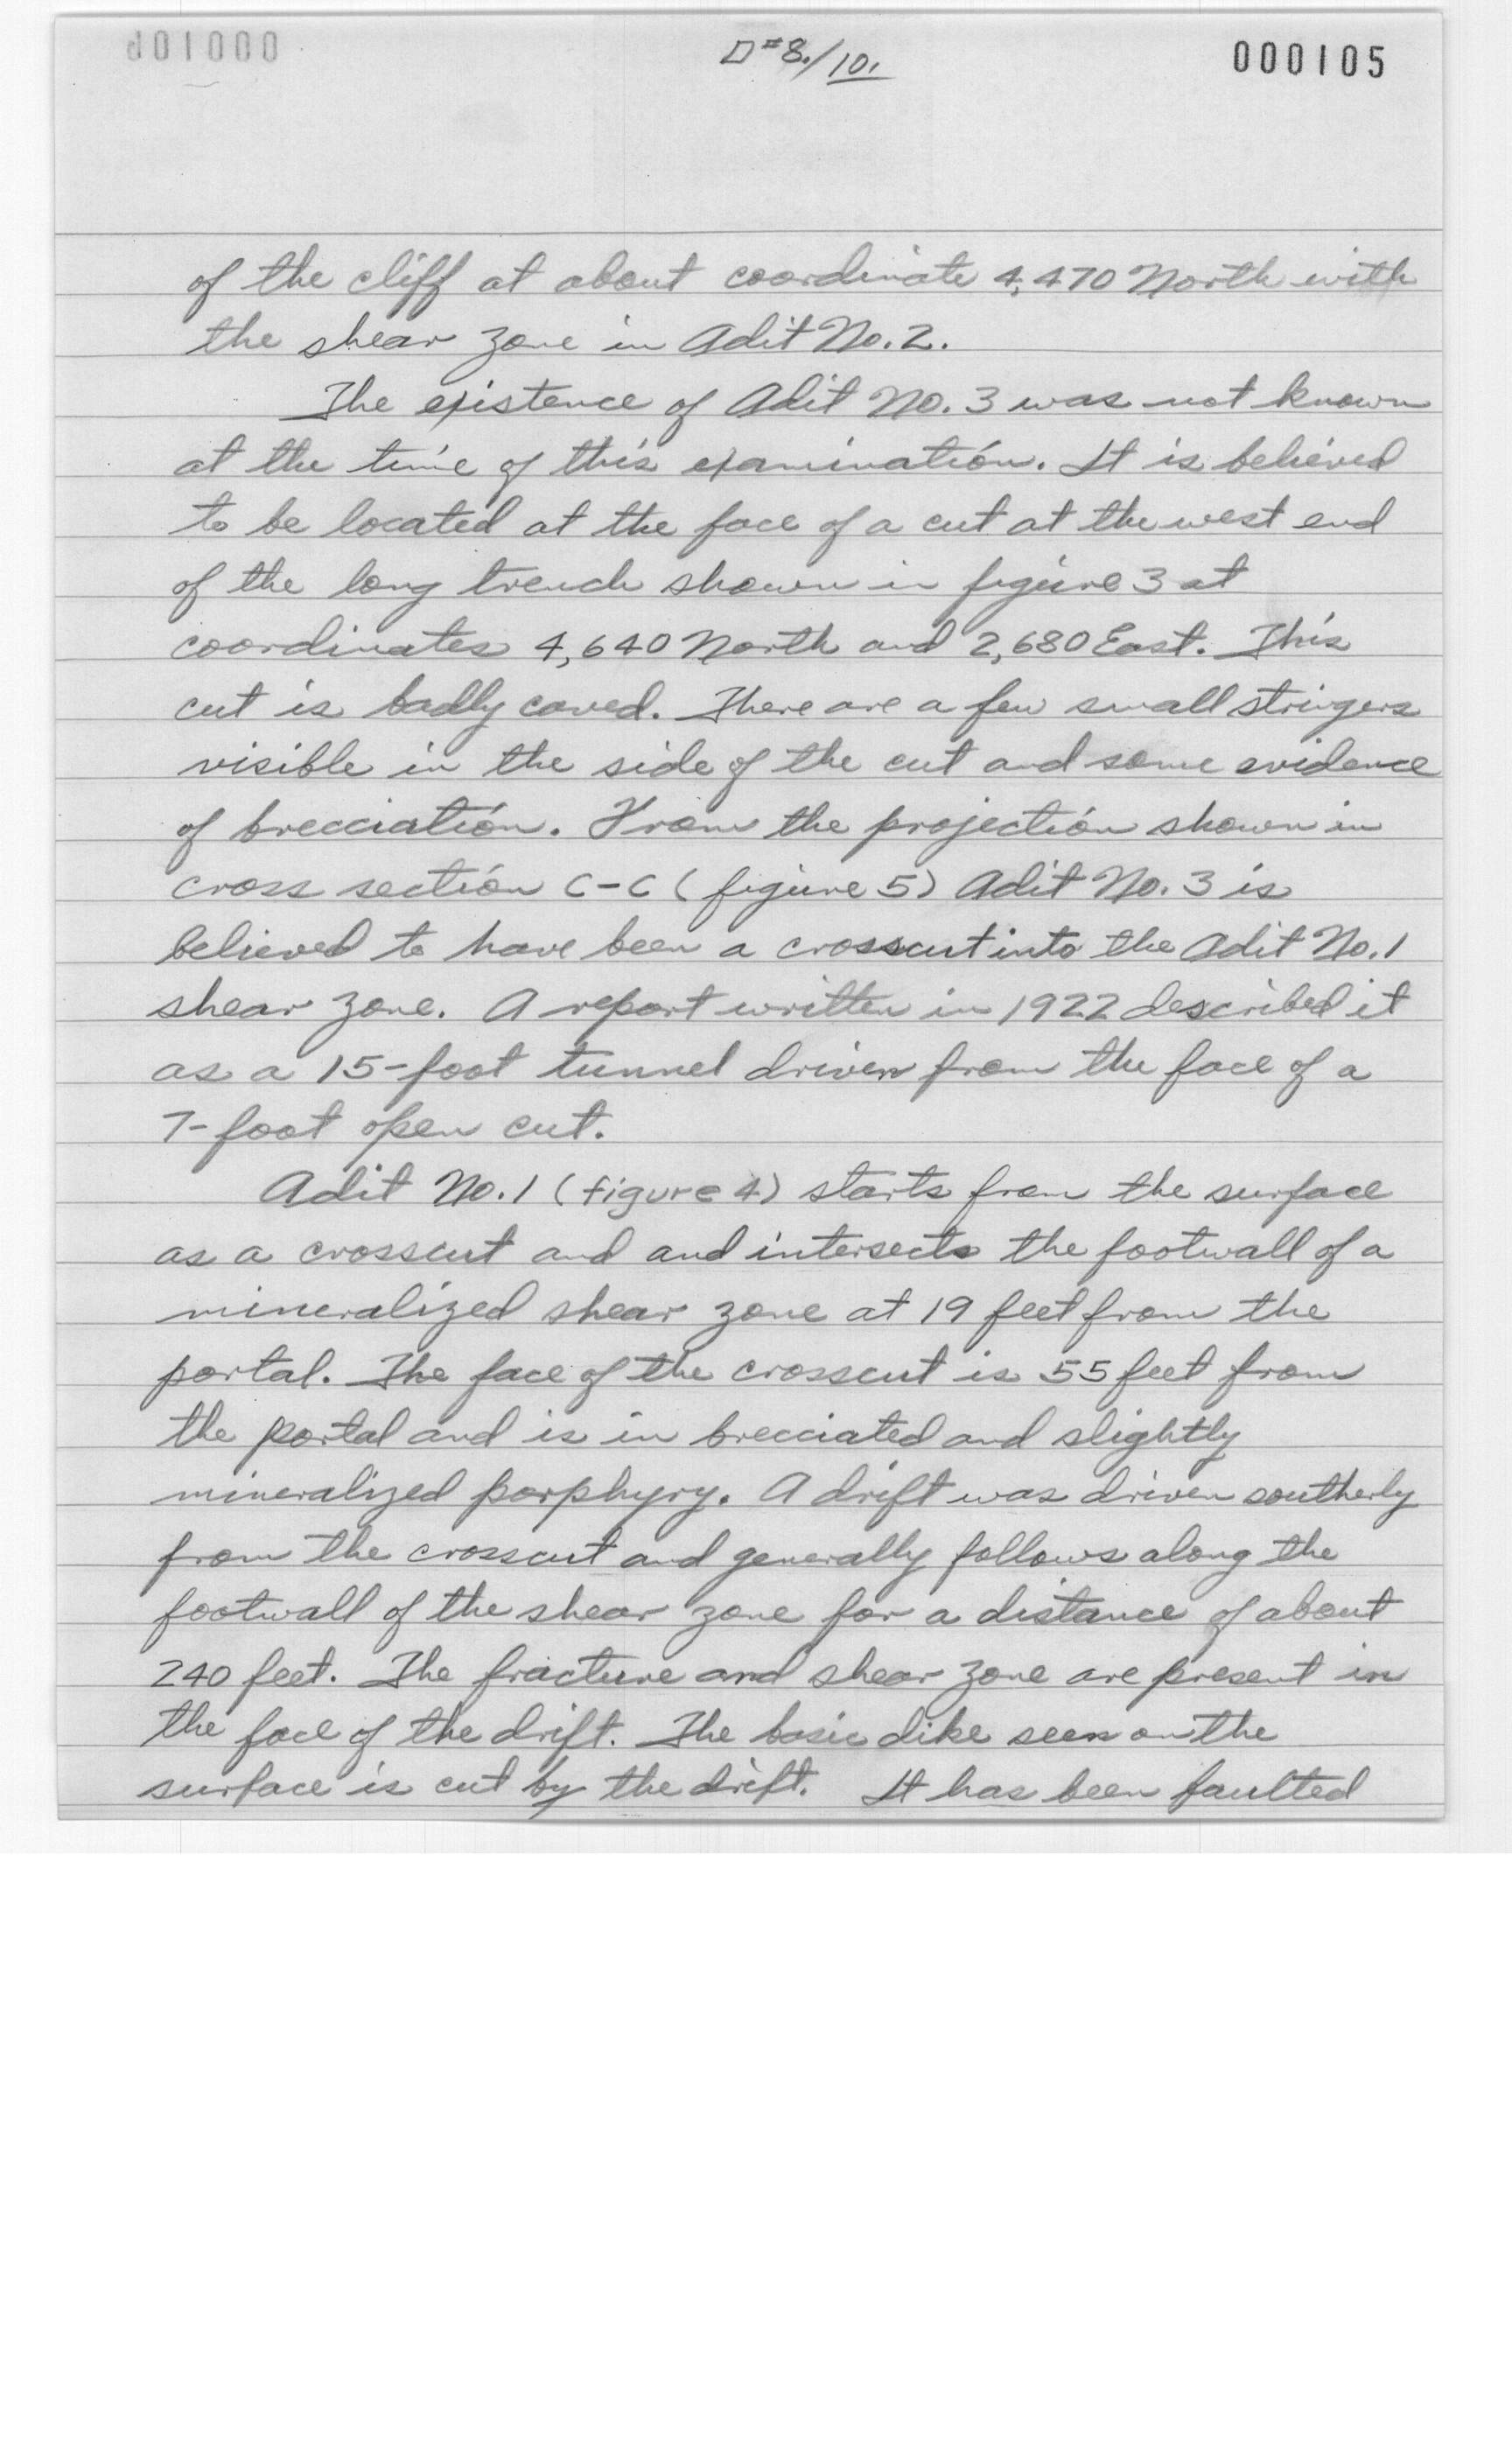 000105
D#8./10.
of the cliff at about coordinate 4,470 North with
the shear zone in Adit No. 2.
The existence of Adit No. 3 was not known
at the time of this examination. It is believed
to be located at the face of a cut at the west end
of the long trench shown in figure 3 at
coordinates 4,640 North and 2,680 East. This
cut is badly caved. There are a few small stringers
visible in the side of the cut and some evidence
of brecciation. From the projection shown in
cross section C-C (figure 5) Adit No. 3 is
believed to have been a crosscut into the Adit No. 1
shear zone. A report written in 1922 described it
as a 15-foot tunnel driven from the face of a
7-foot open cut.
Adit No. 1 (figure 4) starts from the surface
as a crosscut and and intersects the footwall of a
mineralized shear zone at 19 feet from the
portal. The face of the crosscut is 55 feet from
the portal and is in brecciated and slightly
mineralized porphyry. A drift was driven southerly
from the crosscut and generally follows along the
footwall of the shear zone for a distance of about
240 feet. The fracture and shear zone are present in
the face of the drift. The basic dike seen on the
surface is cut by the drift. It has been faulted